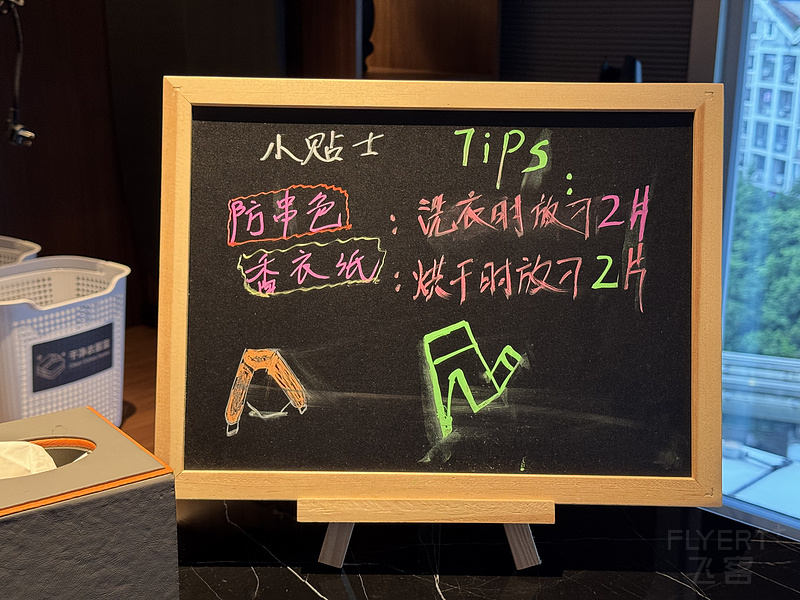 小贴士 Tips:
防串色：洗衣时放入2片
香衣纸：烘干时放入2片
干净衣服篮
FLYERT
飞客